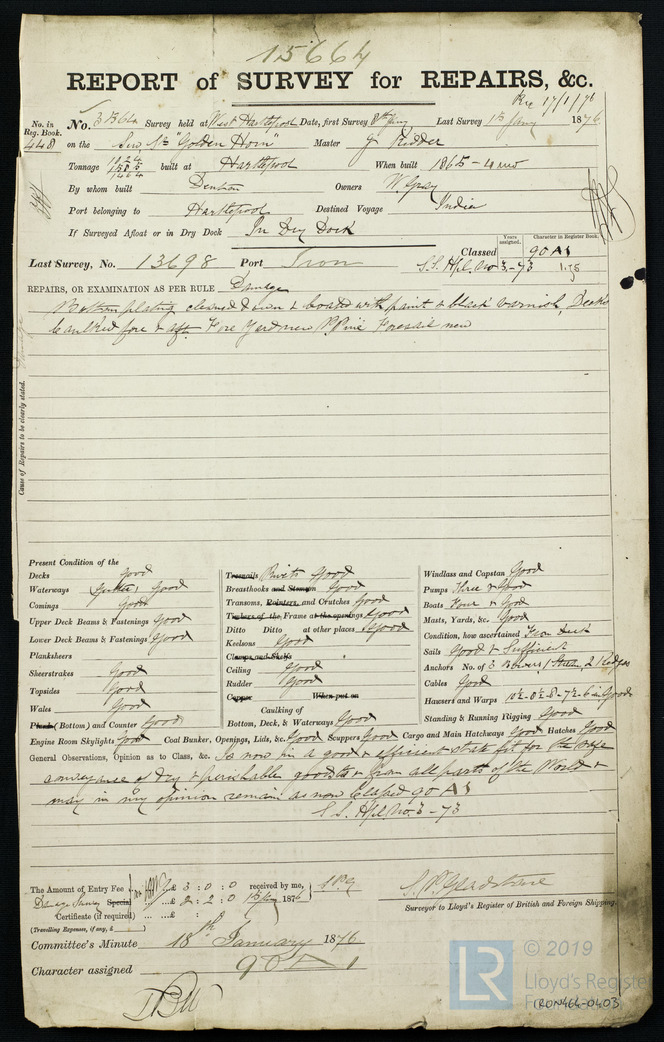 15664
REPORT of SURVEY for REPAIRS, &c.
Rec 17/1/76
No. in Reg. Book. 448
No. 3364 Survey held at West Hartlepool Date, first Survey 8th Jany Last Survey 15 Jany 1876
on the Scw Str "Golden Horn" Master J Kidder
Tonnage 1024 1585 1464 built at Hartlepool When built 1865 - 4 mo
By whom built Denton Owners W. Gray
Port belonging to Hartlepool Destined Voyage India
If Surveyed Afloat or in Dry Dock In Dry Dock
Years assigned. Character in Register Book.
Last Survey, No. 13698 Port Iron Classed 90 A1
S.S. Hpl. No. 3-73 1.75
REPAIRS, OR EXAMINATION AS PER RULE Damage
Bottom plating cleaned down & coated with paint & black varnish, Decks
Caulked fore & aft. Fore Yard new P. Pine Foresail new
Cause of Repairs to be clearly stated.
Present Condition of the
Decks Good
Waterways Gutter, Good
Comings Good
Upper Deck Beams & Fastenings Good
Lower Deck Beams & Fastenings Good
Planksheers
Sheerstrakes Good
Topsides Good
Wales Good
Plank (Bottom) and Counter Good
Engine Room Skylights Good Coal Bunker, Openings, Lids, &c. Good Scuppers Good Cargo and Main Hatchways Good Hatches Good
Treenails Rivets Good
Breasthooks and Stemson Good
Transoms, Pointers, and Crutches Good
Timbers of the Frame at the openings Good
Ditto Ditto at other places Good
Keelsons Good
Clamps and Shelfs
Ceiling Good
Rudder Good
Copper When put on
Caulking of
Bottom, Deck, & Waterways Good
Windlass and Capstan Good
Pumps Three & Good
Boats Four & Good
Masts, Yards, &c. Good
Condition, how ascertained From Deck
Sails Good & Sufficient
Anchors No. of 3 Bowers 1 Stream, 2 Kedges
Cables Good
Hawsers and Warps 10½-8½-8-7½-6 in Good
Standing & Running Rigging Good
General Observations, Opinion as to Class, &c. Is now in a good & efficient state fit for the safe
conveyance of Dry & perishable goods to & from all parts of the World &
may in my opinion remain as now Classed 90 A1
S.S. Hpl No. 3 - 73
The Amount of Entry Fee £ 3 : 0 : 0 received by me,
Damage Survey Special £ 2 : 2 : 0 15 Jany 1876
Certificate (if required) £ : 0 :
(Travelling Expenses, if any, £ )
Surveyor to Lloyd's Register of British and Foreign Shipping.
Committee's Minute 18th January 1876
Character assigned 90 A 1
© 2019
LR
Lloyd's Register
Foundation
IRON464-0403